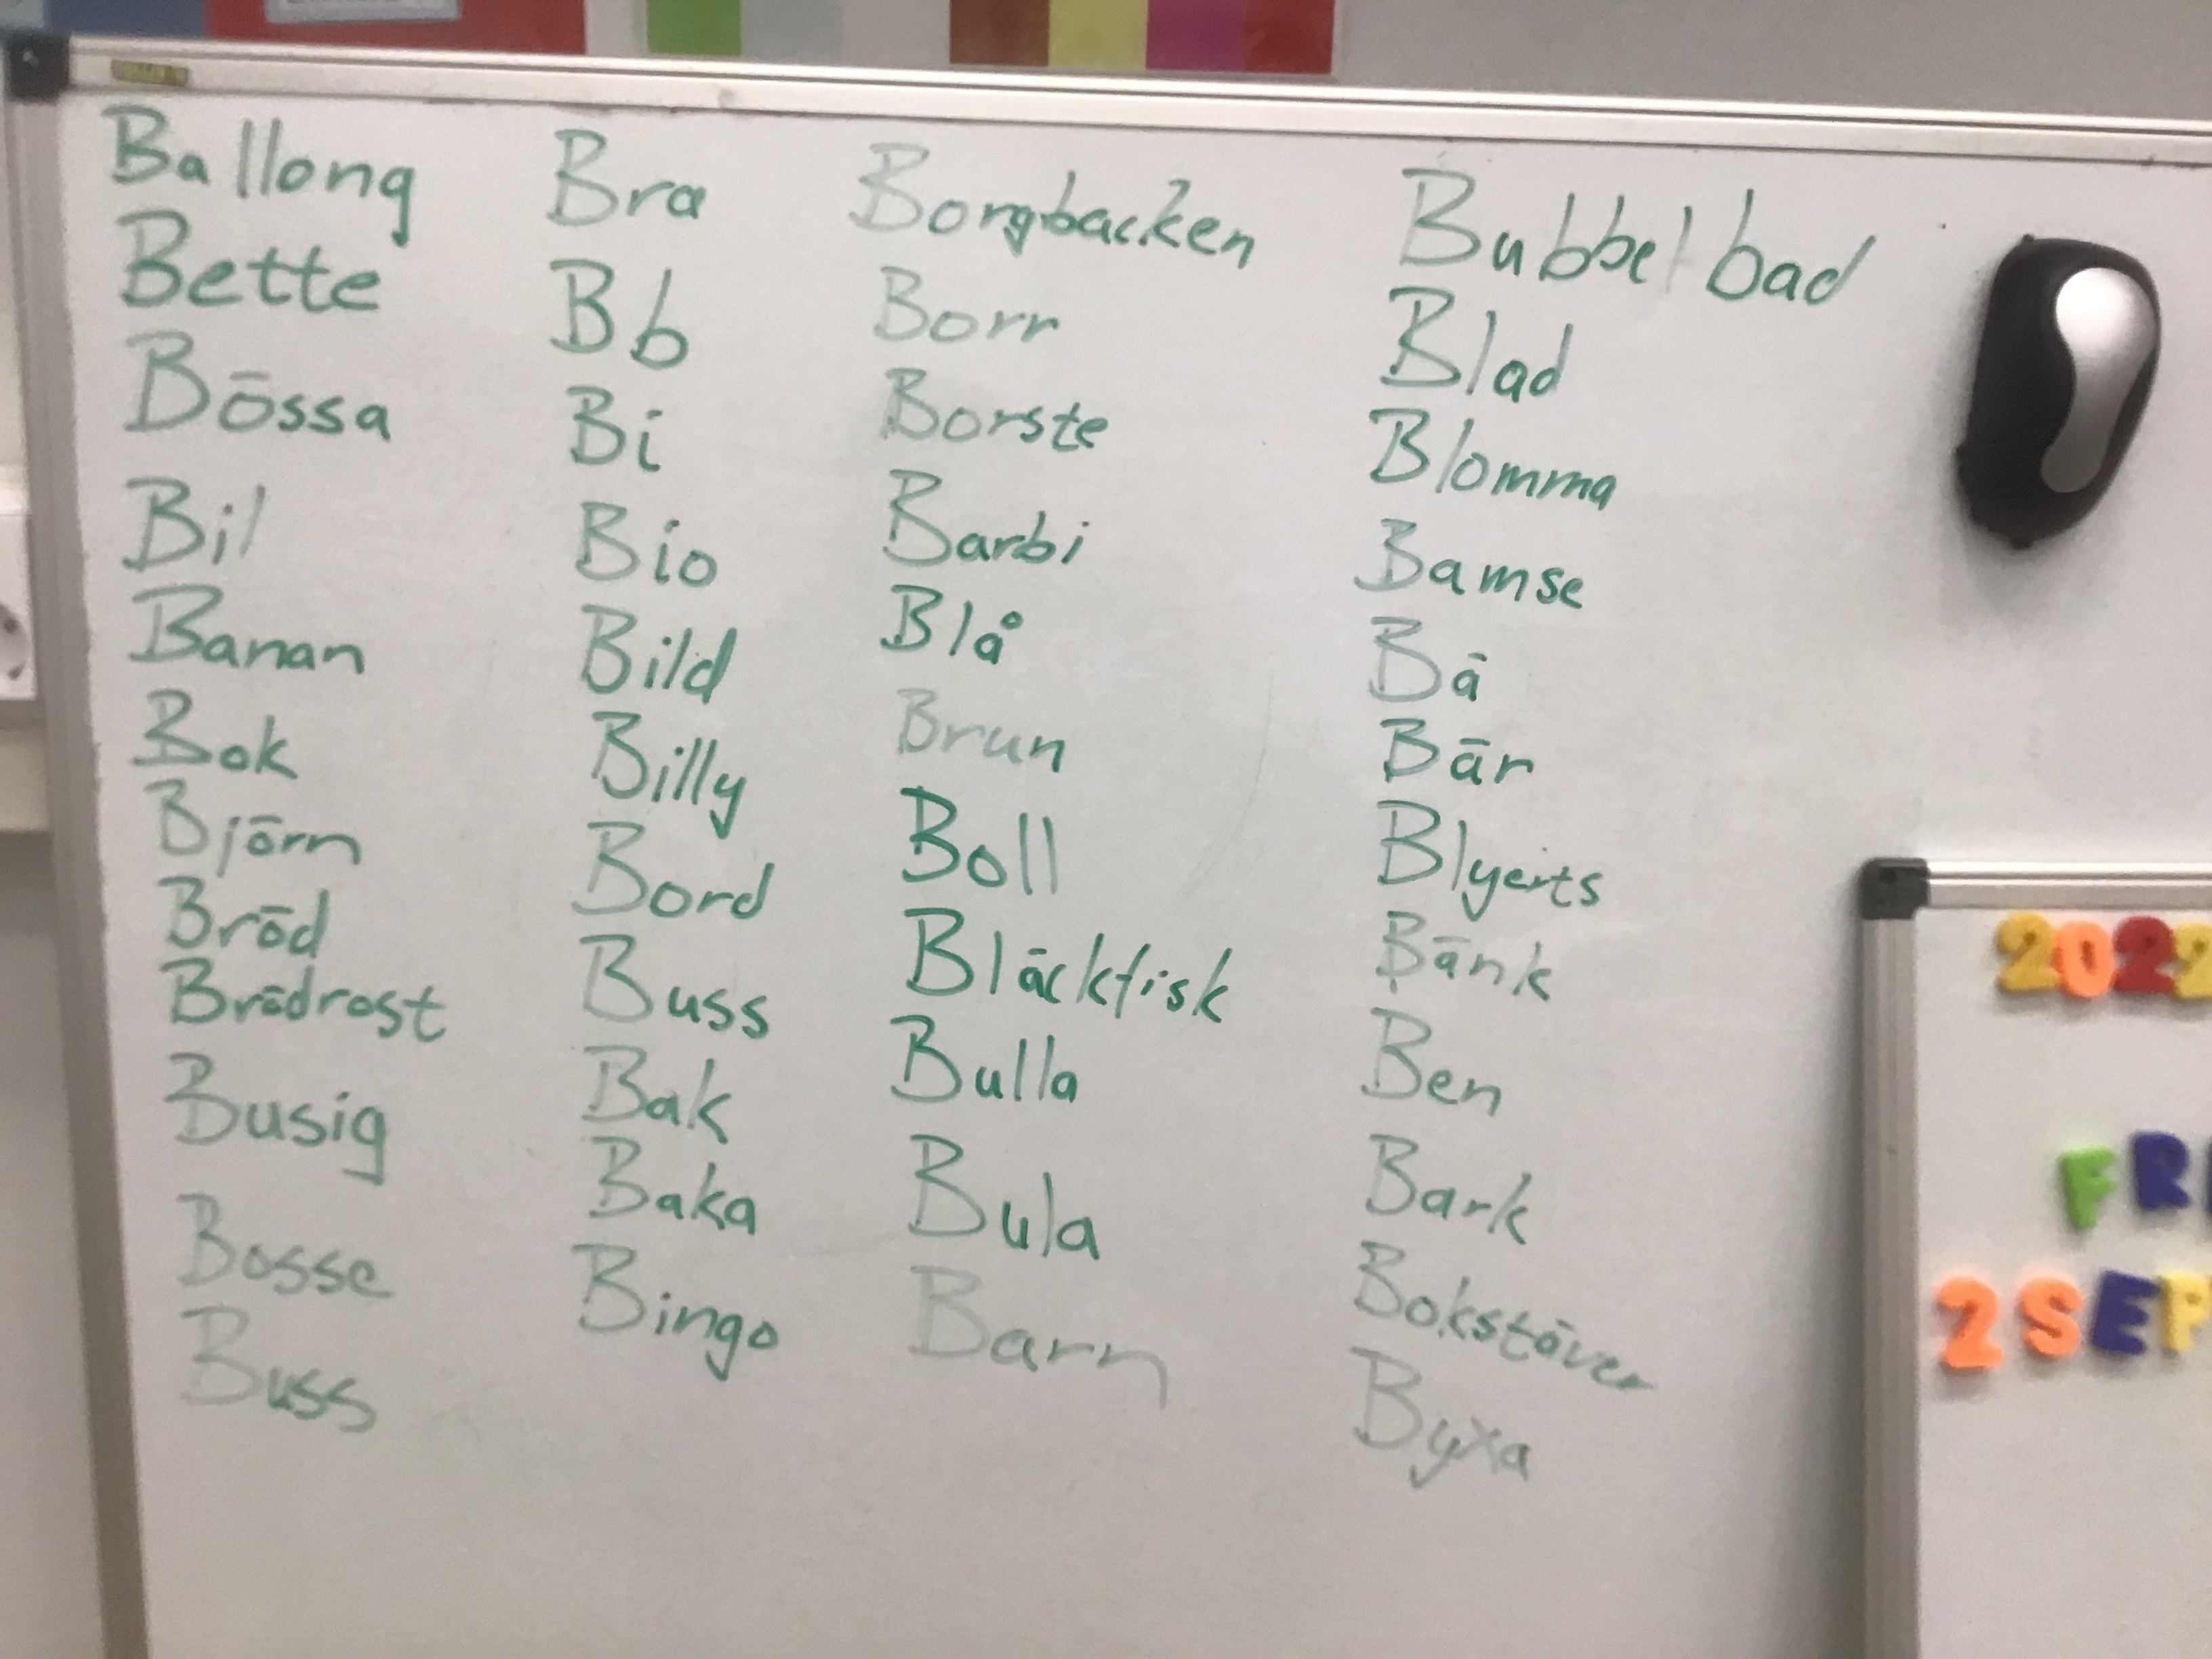 Ballong
Bette
Bössa
Bil
Banan
Bok
Björn
Bröd
Brödrost
Busig
Bosse
Buss
Bra
Bb
Bi
Bio
Bild
Billy
Bord
Buss
Bak
Baka
Bingo
Borgbacken
Borr
Borste
Barbi
Blå
Brun
Boll
Bläckfisk
Bulla
Bula
Barn
Bubbelbad
Blad
Blomma
Bamse
Bä
Bär
Blyerts
Bänk
Ben
Bark
Bokstäver
Byxa
2022
FRE
2 SEP